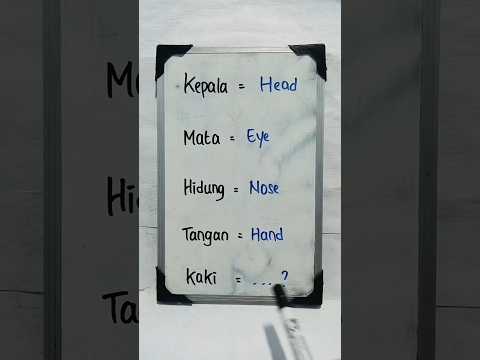 Kepala = Head
Mata = Eye
Hidung = Nose
Tangan = Hand
Kaki = ....?